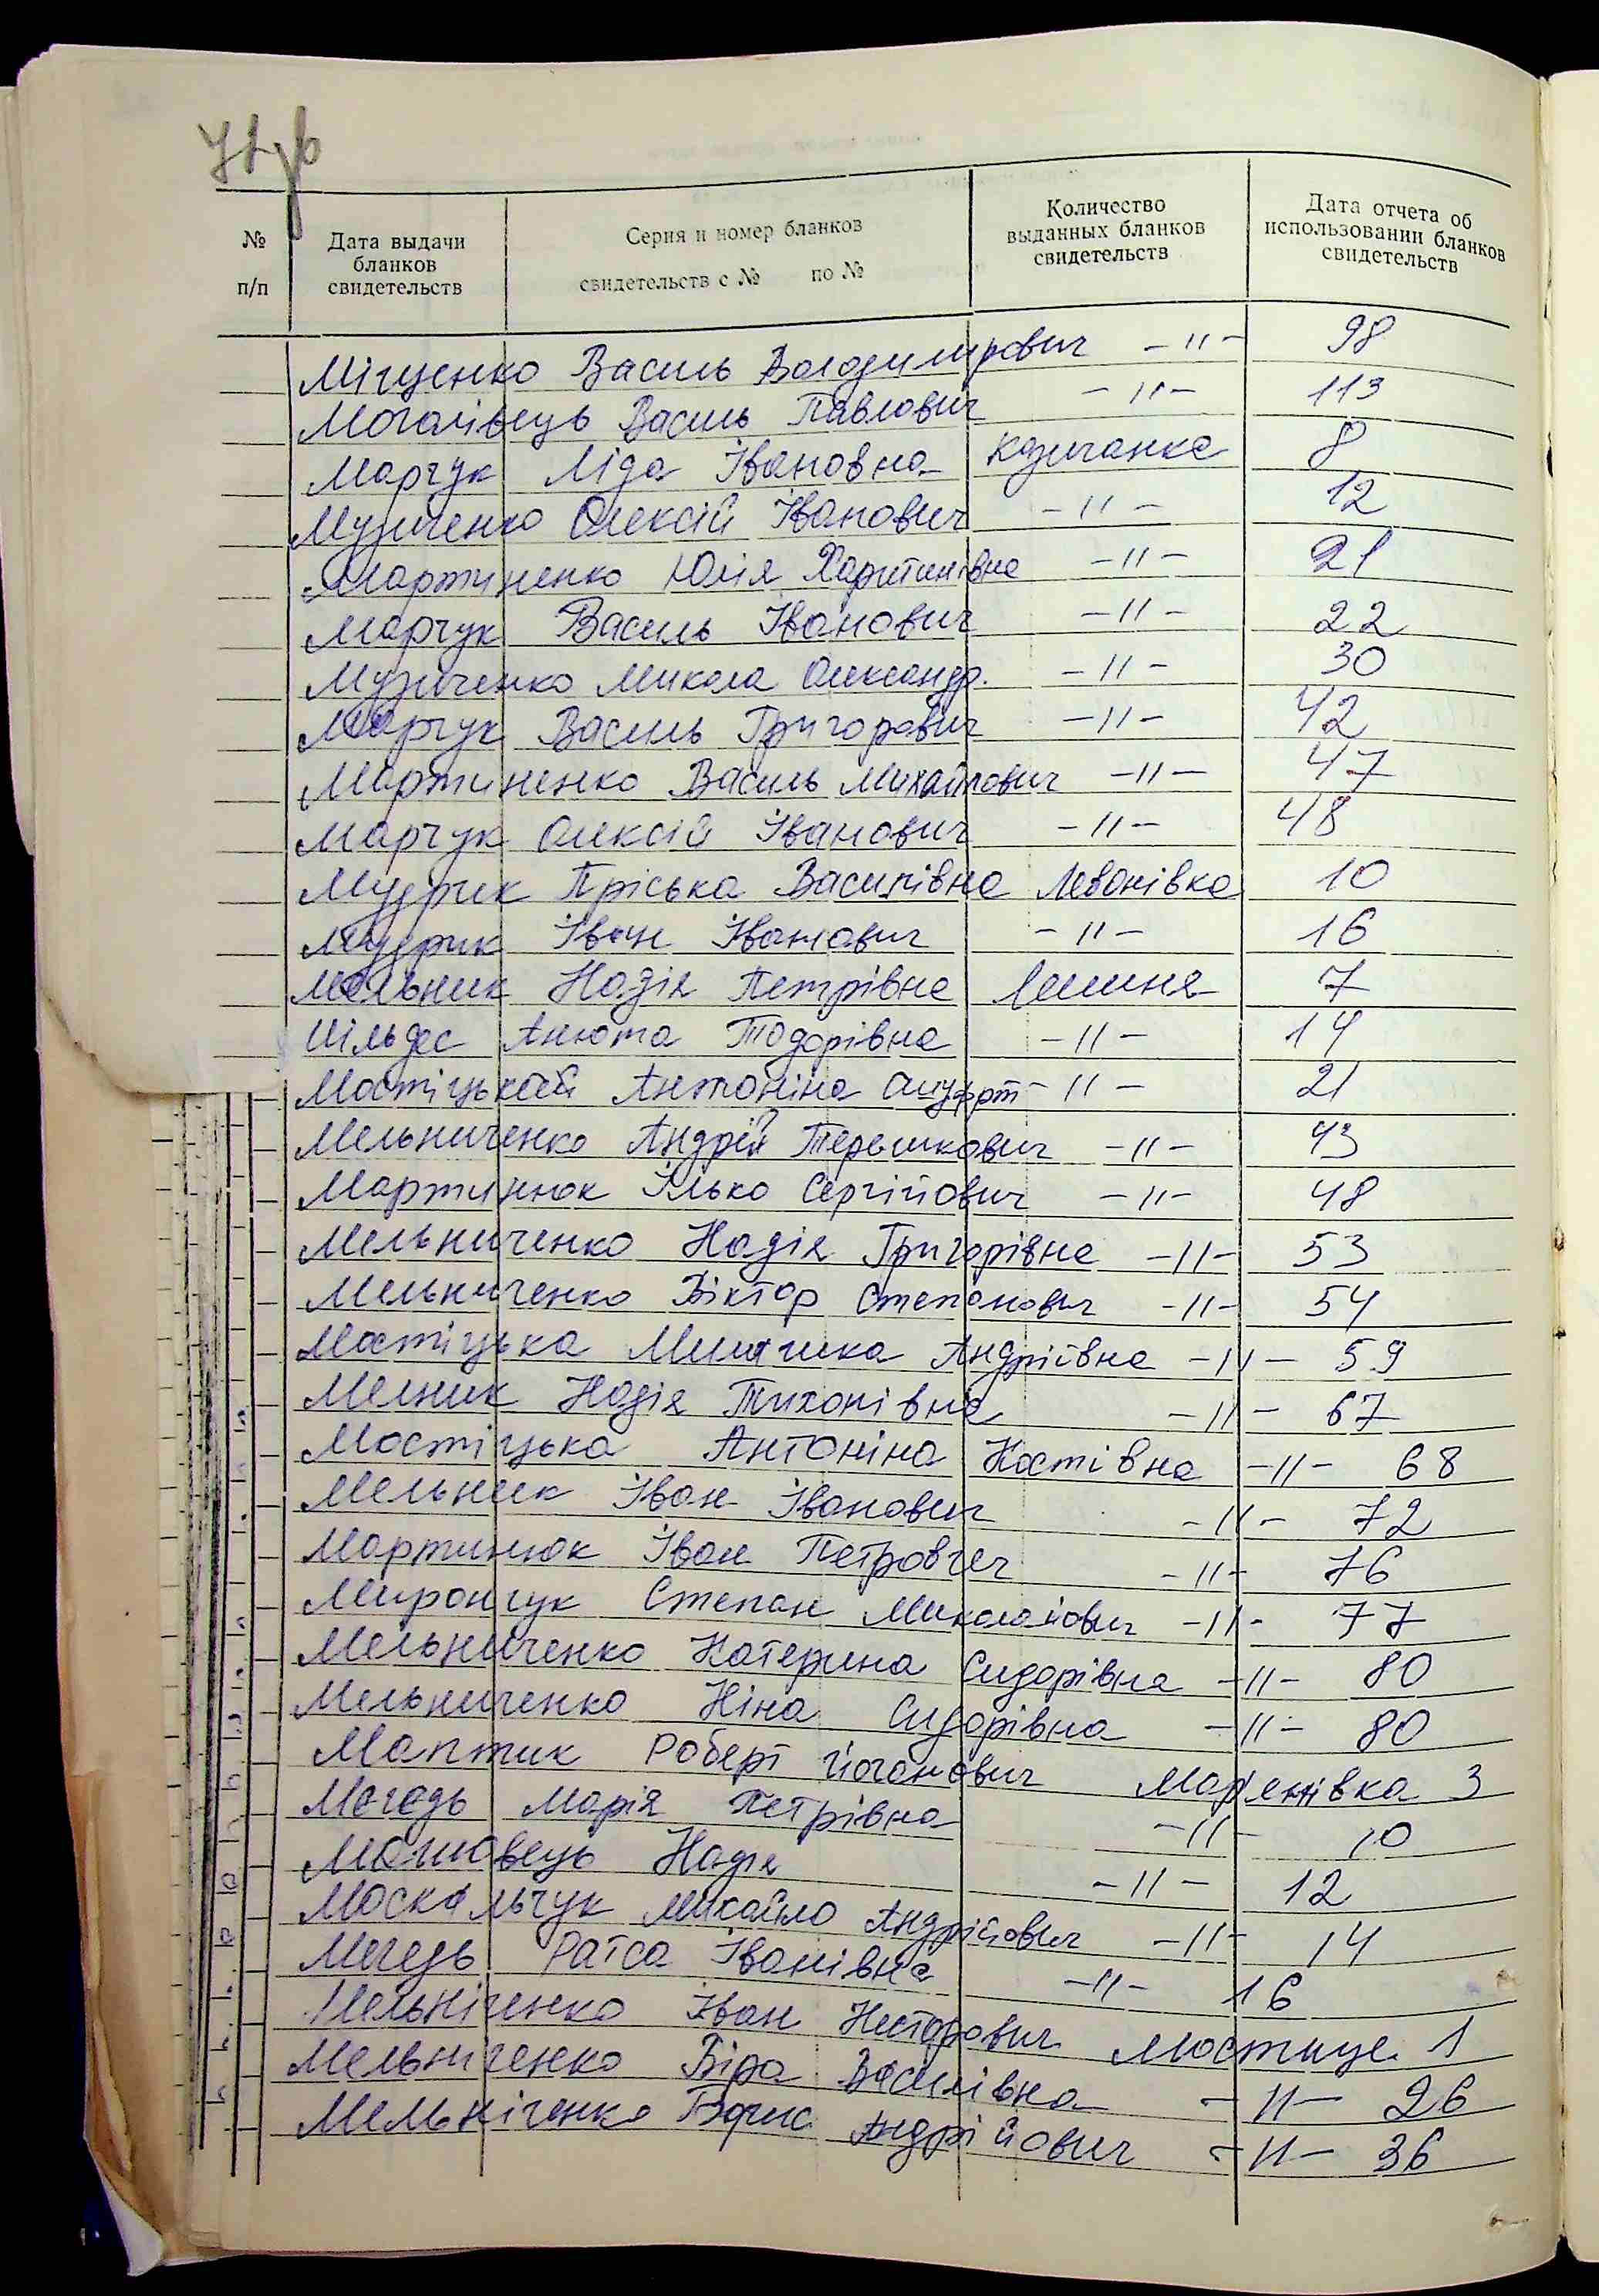 № п/п
Дата выдачи бланков свидетельств
Серия и номер бланков свидетельств с № по №
Количество выданных бланков свидетельств
Дата отчета об использовании бланков свидетельств
Міщенко Василь Володимирович -"- 98
Могалівець Василь Павлович -"- 113
Марчук Ліда Івановна 8
Музиченко Олексій Іванович -"- 12
Мартиненко Юлія Харитинівна -"- 21
Марчук Василь Іванович -"- 22
Музиченко Микола Олександр. -"- 30
Марчук Василь Григорович -"- 42
Мартиненко Василь Михайлович -"- 47
Марчук Олексій Іванович -"- 48
Мудрик Пріська Василівна Леванівка 10
Мудрик Іван Іванович -"- 16
Мельник Надія Петрівна Лишня 7
Мільдес Анюта Тодорівна -"- 14
Мостіцькай Антоніна -"- 21
Мельниченко Андрій Терешкович -"- 43
Мартинюк Ілько Сергійович -"- 48
Мельниченко Надія Григорівна -"- 53
Мельниченко Віктор Степанович -"- 54
Мостіцька Андріївна -"- 59
Мелник Надія Тихонівна -"- 67
Мостіцька Антоніна Костівна -"- 68
Мельник Іван Іванович -"- 72
Мартинюк Іван Петрович -"- 76
Мирончук Степан Миколайович -"- 77
Мельниченко Катерина Сидорівна -"- 80
Мельниченко Ніна Сидорівна -"- 80
Маптик Роберт Йоганович Мар'янівка 3
Магедь Марія Петрівна -"- 10
Надія -"- 12
Москальчук Михайло Андрійович -"- 14
Мегедь Раїса Іванівна -"- 16
Мельніченко Іван Несторович Мостище 1
Мельниченко Віра Василівна -"- 26
Мельніченко Борис Андрійович -"- 36